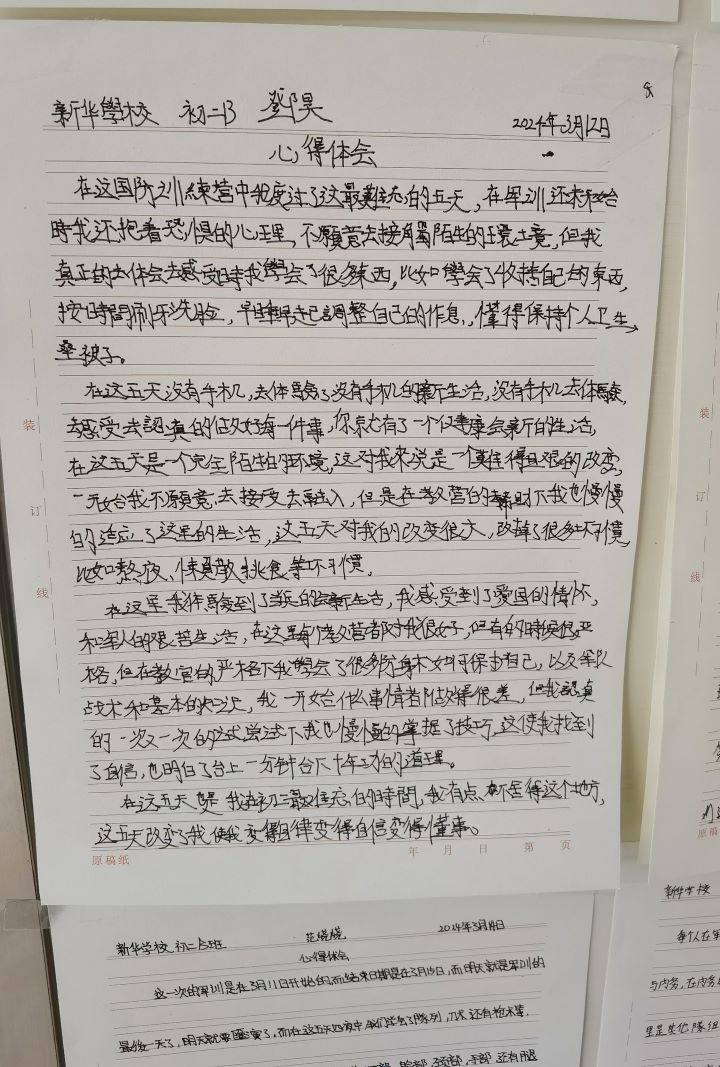 新华學校 初二B 鄧昊
2024年3月12日
心得体会
在这国防训練营中我度过了这最難忘的五天，在军训还未开始
時我还抱着恐惧的心理，不願意去接觸陌生的環境，但我
真正的去体会去感受時我學会了很多東西，比如學会了收拾自己的東西，
按時間刷牙洗脸，早睡早起調整自己的作息，懂得保持个人卫生，
叠被子。
在这五天没有手机，去体驗了没有手机的新生活，没有手机去体驗，
去感受去認真的做好每一件事，你就也有了一个健康全新的生活，
在这五天是一个完全陌生的环境，这对我来说是一个難得且艰的改变，
一开始我不願意去接受去融入，但是在教官的幇助下我也慢慢
的适应了这里的生活，这五天对我的改变很大，改掉了很多坏习慣，
比如熬夜、挑食等坏习慣。
在这里我体驗到了当兵的全新生活，我感受到了爱国的情怀，
和军人的艰苦生活，在这里每位教官都对我很好，但有的時候很严
格，但在教官的严格下我學会了很多防身术如何保护自己，以及军队
战术和基本的知识，我一开始什么事情都做得很差，但我認真
的一次又一次的尝试下我也慢慢的掌握了技巧，这使我找到
了自信，也明白了台上一分钟台下十年功的道理。
在这五天是我在初二最难忘的時間，我有点不舍得这个地方，
这五天改变了我使我变得自律变得自信变得懂事。
原稿纸 年 月 日 第 页
装
订
线
装
订
线
新华学校 初二B班 范晓晓 2024年3月14日
心得体会
这一次的军训是在3月11日开始的，而结束日期是在3月15日，而明天就是军训的
最後一天了，明天就要匯演了，而在这五天四夜中我们学会了隊列，刀术还有枪术等
新华学校
每个人在军
与内务，在内务
原稿